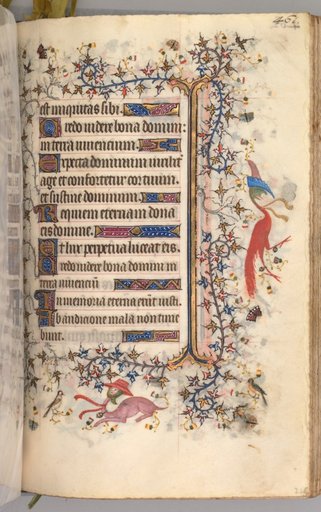 est iniquitas sibi.
Credo videre bona domini:
in terra viuencium.
Expecta dominum viriliter
age et confortetur cor tuum.
et sustine dominum.
Requiem eternam dona
eis domine.
Et lux perpetua luceat eis.
Credo videre bona domini in
terra viuencium.
In memoria eterna erit iusti.
Ab audicione mala non time
bunt.